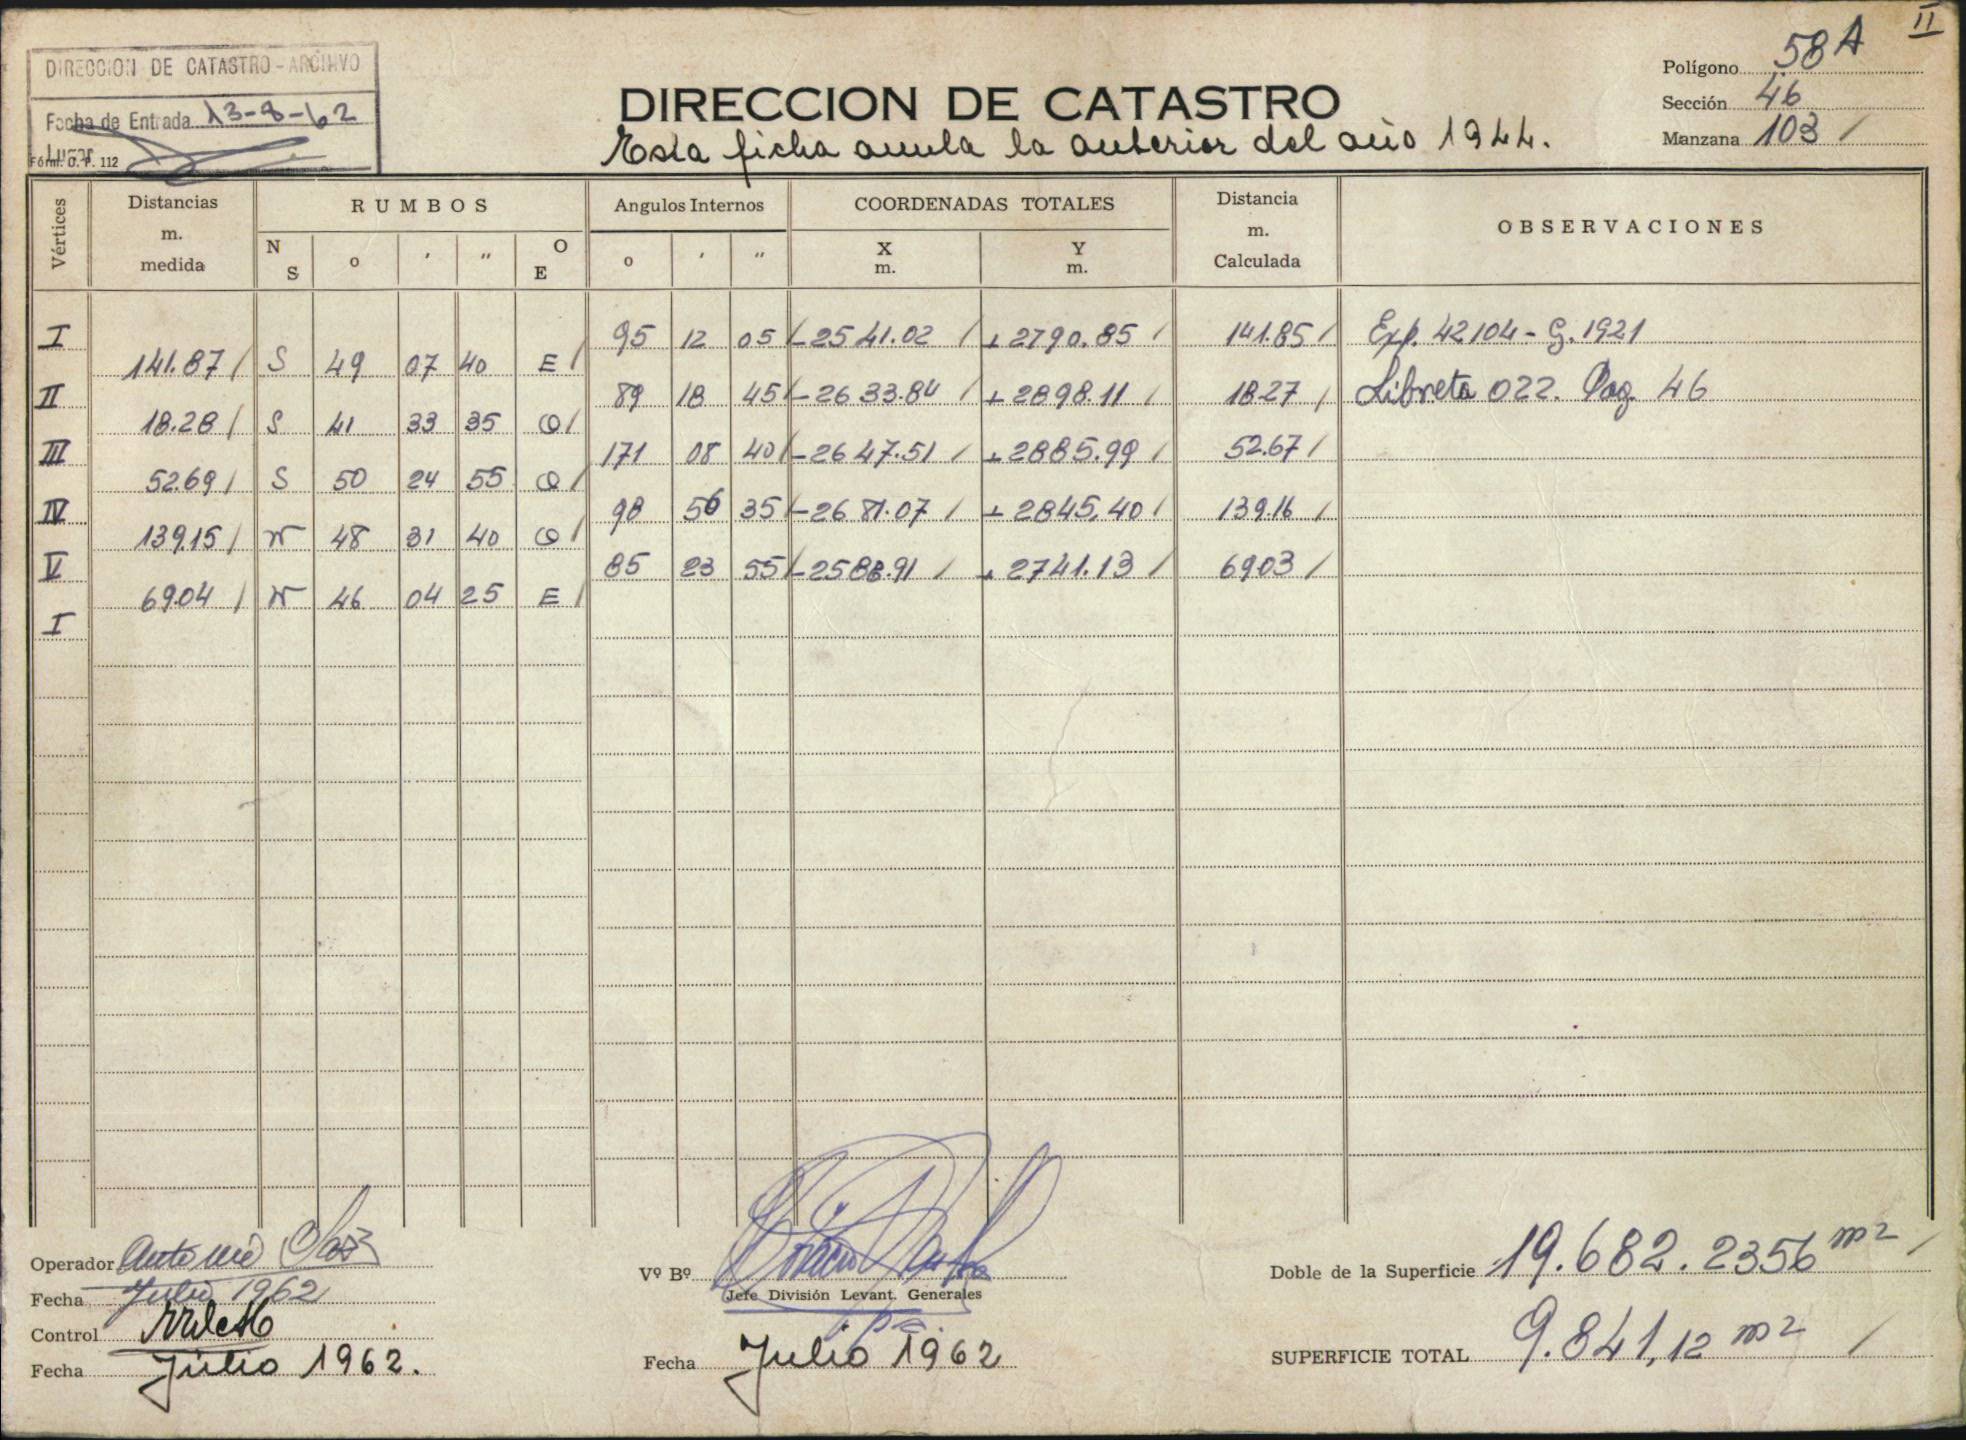 II
DIRECCION DE CATASTRO - ARCHIVO
Fecha de Entrada 13-8-62
Lugar
Fórm. O. P. 112
DIRECCION DE CATASTRO
Esta ficha anula la anterior del año 1944.
Polígono 58A
Sección 46
Manzana 103 /
Vértices
Distancias m. medida
RUMBOS
N S ° ′ ″ O E
Angulos Internos
° ′ ″
COORDENADAS TOTALES
X m. Y m.
Distancia m. Calculada
OBSERVACIONES
I 95 12 05 / -2541.02 / +2790.85 / 141.85 / Exp. 42104 - G. 1921
141.87 / S 49 07 40 E /
II 89 18 45 / -2633.84 / +2898.11 / 18.27 / Libreta 022. Pag. 46
18.28 / S 41 33 35 O /
III 171 08 40 / -2647.51 / +2885.99 / 52.67 /
52.69 / S 50 24 55 O /
IV 98 56 35 / -2681.07 / +2845.40 / 139.16 /
139.15 / N 48 31 40 O /
V 85 23 55 / -2588.91 / +2741.13 / 69.03 /
69.04 / N 46 04 25 E /
I
Operador Antonio
Fecha Julio 1962
Control
Fecha Julio 1962.
Vº Bº
Jefe División Levant. Generales
Fecha Julio 1962
Doble de la Superficie 19.682.2356 m2 /
SUPERFICIE TOTAL 9.841,12 m2 /